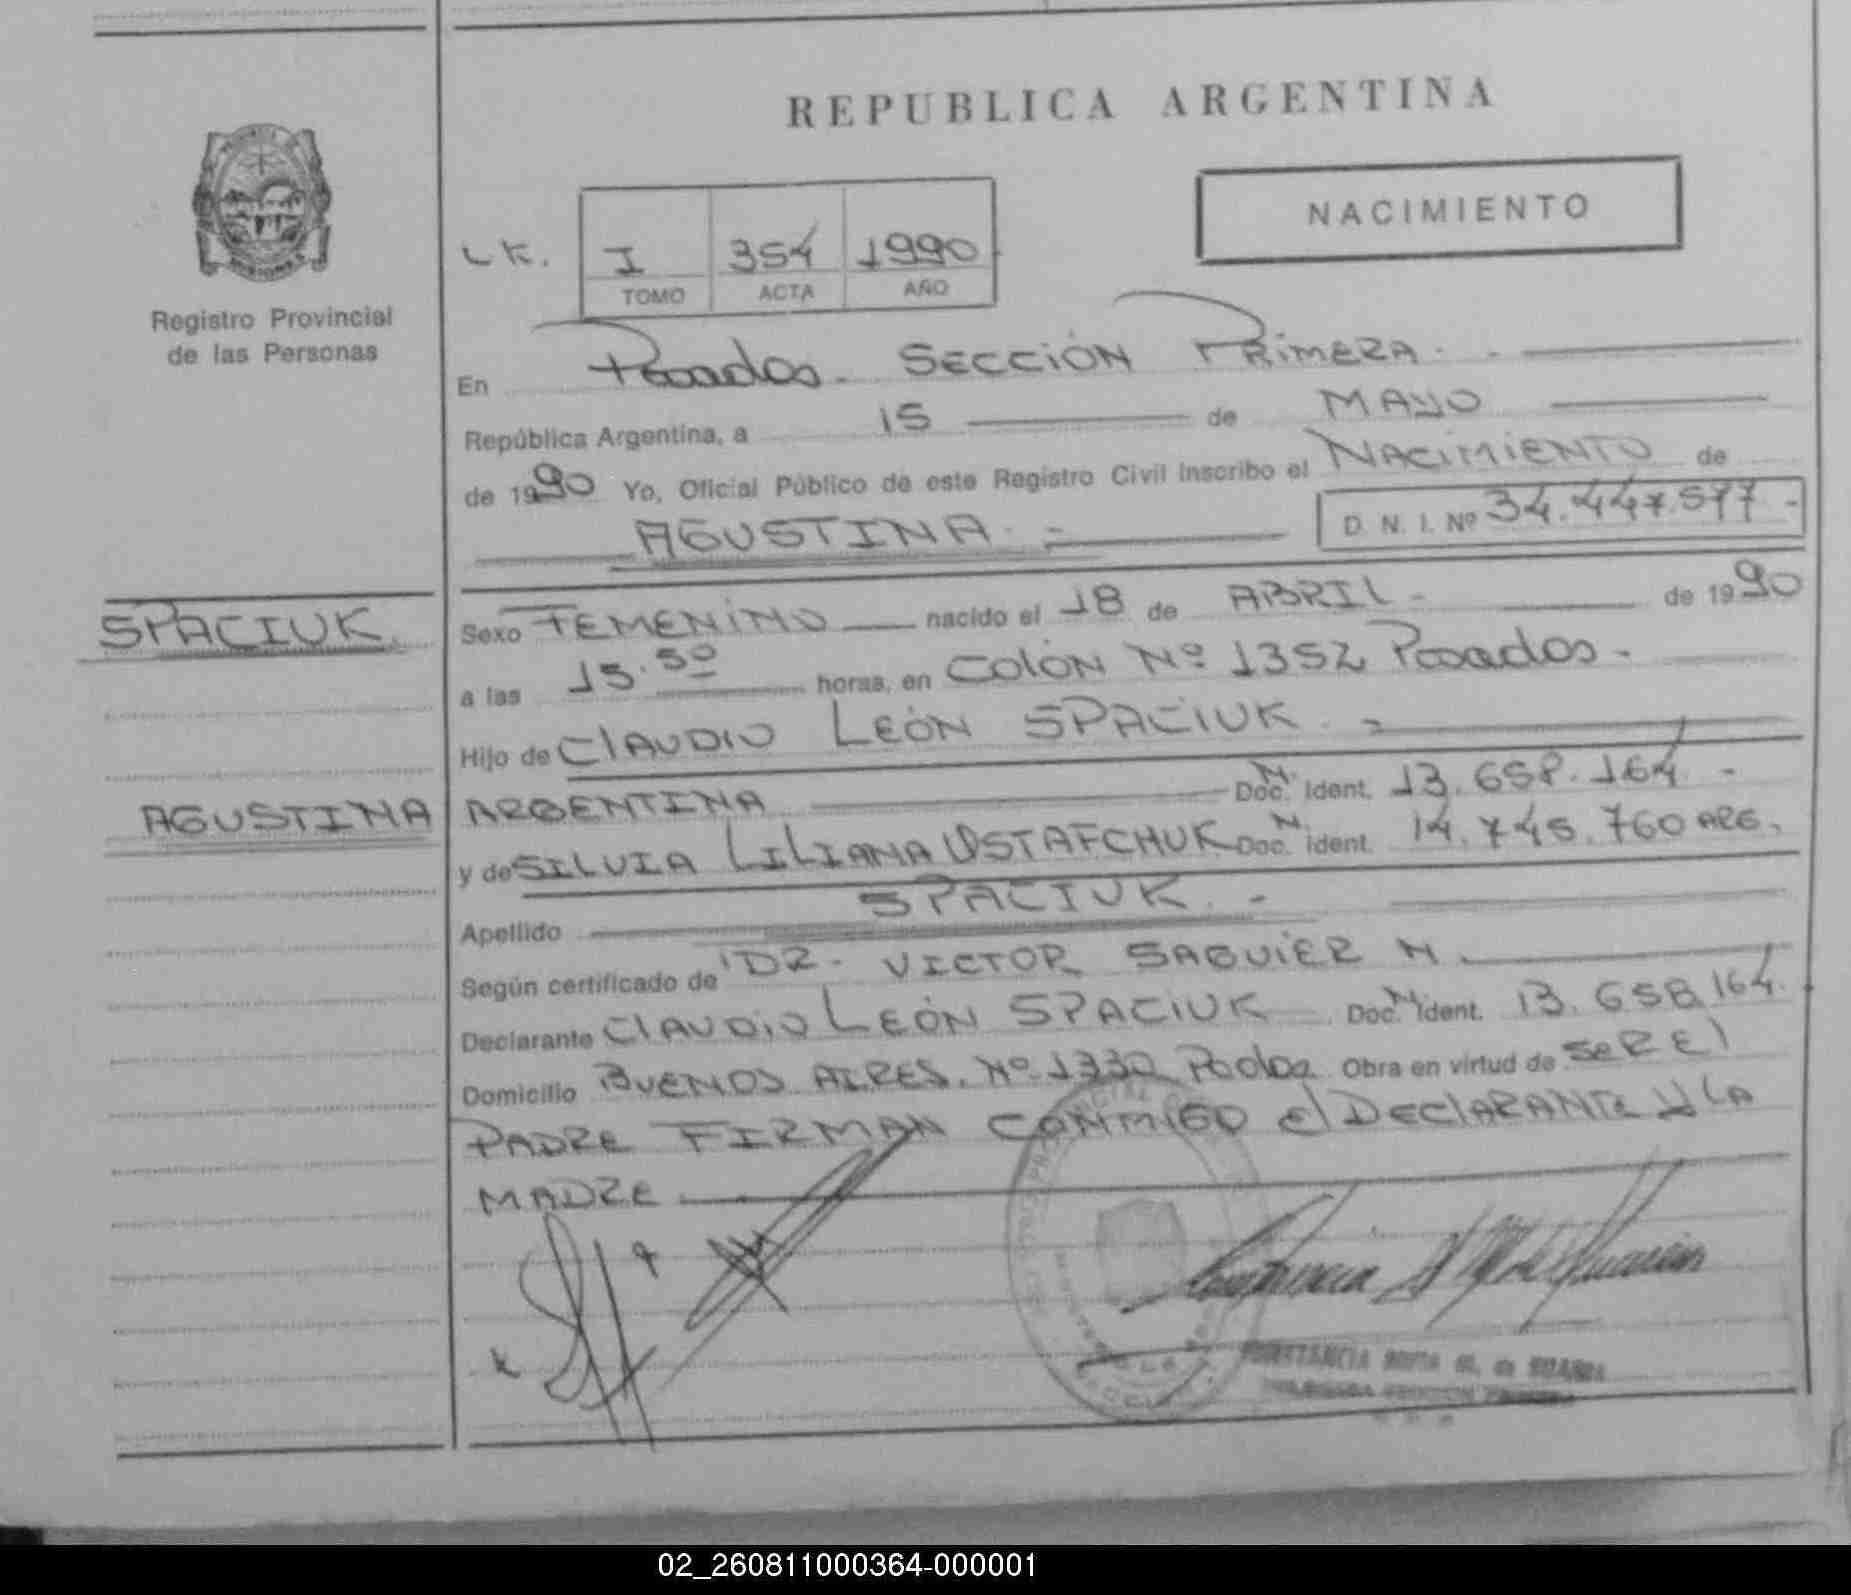 REPUBLICA ARGENTINA
NACIMIENTO
LK. I 354 1990
TOMO ACTA AÑO
Registro Provincial
de las Personas
En Posadas. SECCIÓN PRIMERA.
República Argentina, a 15 de MAYO
de 1990 Yo, Oficial Público de este Registro Civil inscribo el NACIMIENTO de
AGUSTINA. D. N. I. Nº 34.447.577-
SPACIUK.
Sexo FEMENINO nacido el 18 de ABRIL- de 1990
a las 15.50 horas, en COLÓN Nº 1352 Posadas.
Hijo de CLAUDIO LEÓN SPACIUK.
AGUSTINA
ARGENTINA Doc. N. Ident. 13.658.164.-
y de SILVIA LILIANA OSTAFCHUK Doc. N Ident. 14.745.760 ARG.
Apellido SPACIUK.-
Según certificado de DR. VICTOR SAGUIER N.
Declarante CLAUDIO LEÓN SPACIUK Doc. N Ident. 13.658.164.
Domicilio BUENOS AIRES. Nº 1330 Obra en virtud de SER El
PADRE FIRMAN CONMIGO El DECLARANTE Y LA
MADRE
02_260811000364-000001